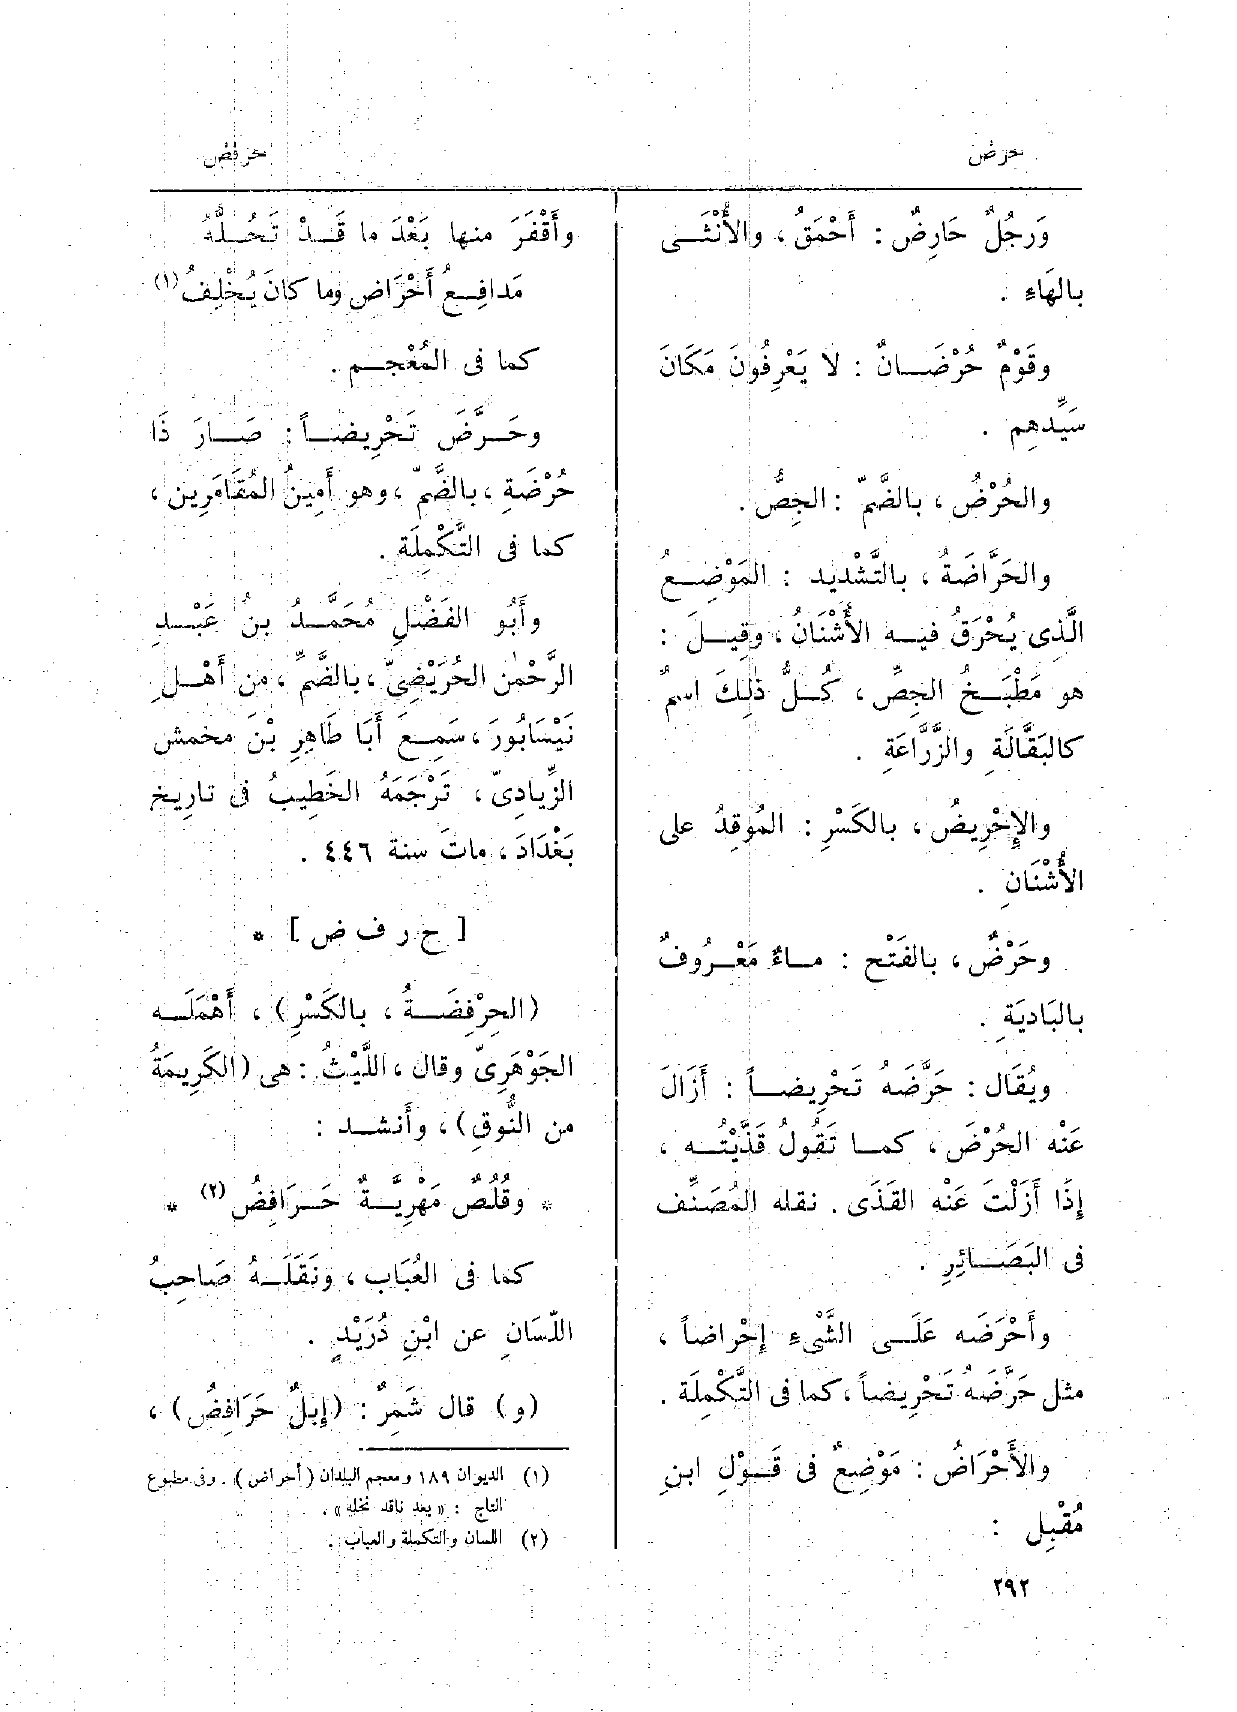 حرض
حرفض
وَرجُلٌ حَارِضٌ : أَحْمَقُ ، والأُنْثَى
بالهَاءِ .
وقَوْمٌ حُرْضَانٌ : لا يَعْرِفُونَ مَكَانَ
سَيِّدهِم .
والحُرْضُ ، بالضَّمّ : الجِصُّ .
والحَرَّاضَةُ ، بالتَّشْديد : المَوْضِعُ
الَّذِى يُحْرَقُ فيه الأُشْنَانُ ، وقِيلَ :
هو مَطْبَخُ الجِصِّ ، كُلُّ ذٰلِكَ اسمٌ
كالبَقَّالَةِ والزَّرَّاعَةِ .
والإِحْرِيضُ ، بالكَسْرِ : المُوقِدُ على
الأُشْنَانِ .
وحَرْضٌ ، بالفَتْح : ماءٌ مَعْرُوفٌ
بالبَاديَةِ .
ويُقَال : حَرَّضَهُ تَحْرِيضاً : أَزَالَ
عَنْه الحُرْضَ ، كما تَقُولُ قَذَّيْتُه ،
إِذَا أَزَلْتَ عَنْه القَذَى . نقله المُصَنِّف
فى البَصَائِرِ .
وأَحْرَضَه عَلَى الشَّىْءِ إِحْراضاً ،
مثل حَرَّضَهُ تَحْرِيضاً ، كما فى التَّكْمِلَة .
والأَحْرَاضُ : مَوْضِعٌ فى قَوْلِ ابنِ
مُقْبِل :
وأَقْفَرَ منها بَعْدَ ما قَدْ تَحُلُّهُ
مَدافِعُ أَحْرَاضٍ وما كانَ يُخْلِفُ (١)
كما فى المُعْجم .
وحَرَّضَ تَحْرِيضاً : صَارَ ذَا
حُرْضَةِ ، بالضَّمّ ، وهو أَمِينُ المُقَامَرِين ،
كما فى التَّكْمِلَة .
وأَبُو الفَضْلِ مُحَمَّدُ بنُ عَبْدِ
الرَّحْمٰن الحُرَيْضِىّ ، بالضَّمِّ ، من أَهْلِ
نَيْسَابُورَ ، سَمِعَ أَبَا طَاهِرِ بْنَ مخمش
الزِّيادِىّ ، تَرْجَمَهُ الخَطِيبُ فى تاريخ
بَغْدَادَ ، ماتَ سنة ٤٤٦ .
[ ح ر ف ض ] *
(الحِرْفِضَةُ ، بالكَسْرِ) ، أَهْمَلَه
الجَوْهَرِىّ وقال ، اللَّيْثُ : هى (الكَرِيمَةُ
من النُّوقِ) ، وأَنشد :
* وقُلُصٌ مَهْرِيَّةٌ حَرَافِضُ (٢) *
كما فى العُبَاب ، ونَقَلَهُ صَاحِبُ
اللّسَانِ عن ابْنِ دُرَيْدٍ .
(و) قال شَمِرٌ : (إِبِلٌ حَرَافِضُ) ،
(١) الديوان ١٨٩ ومعجم البلدان (أحراض) . وفى مطبوع
التاج : « بعد ناقد نخله » .
(٢) اللسان والتكملة والعباب .
٢٩٢